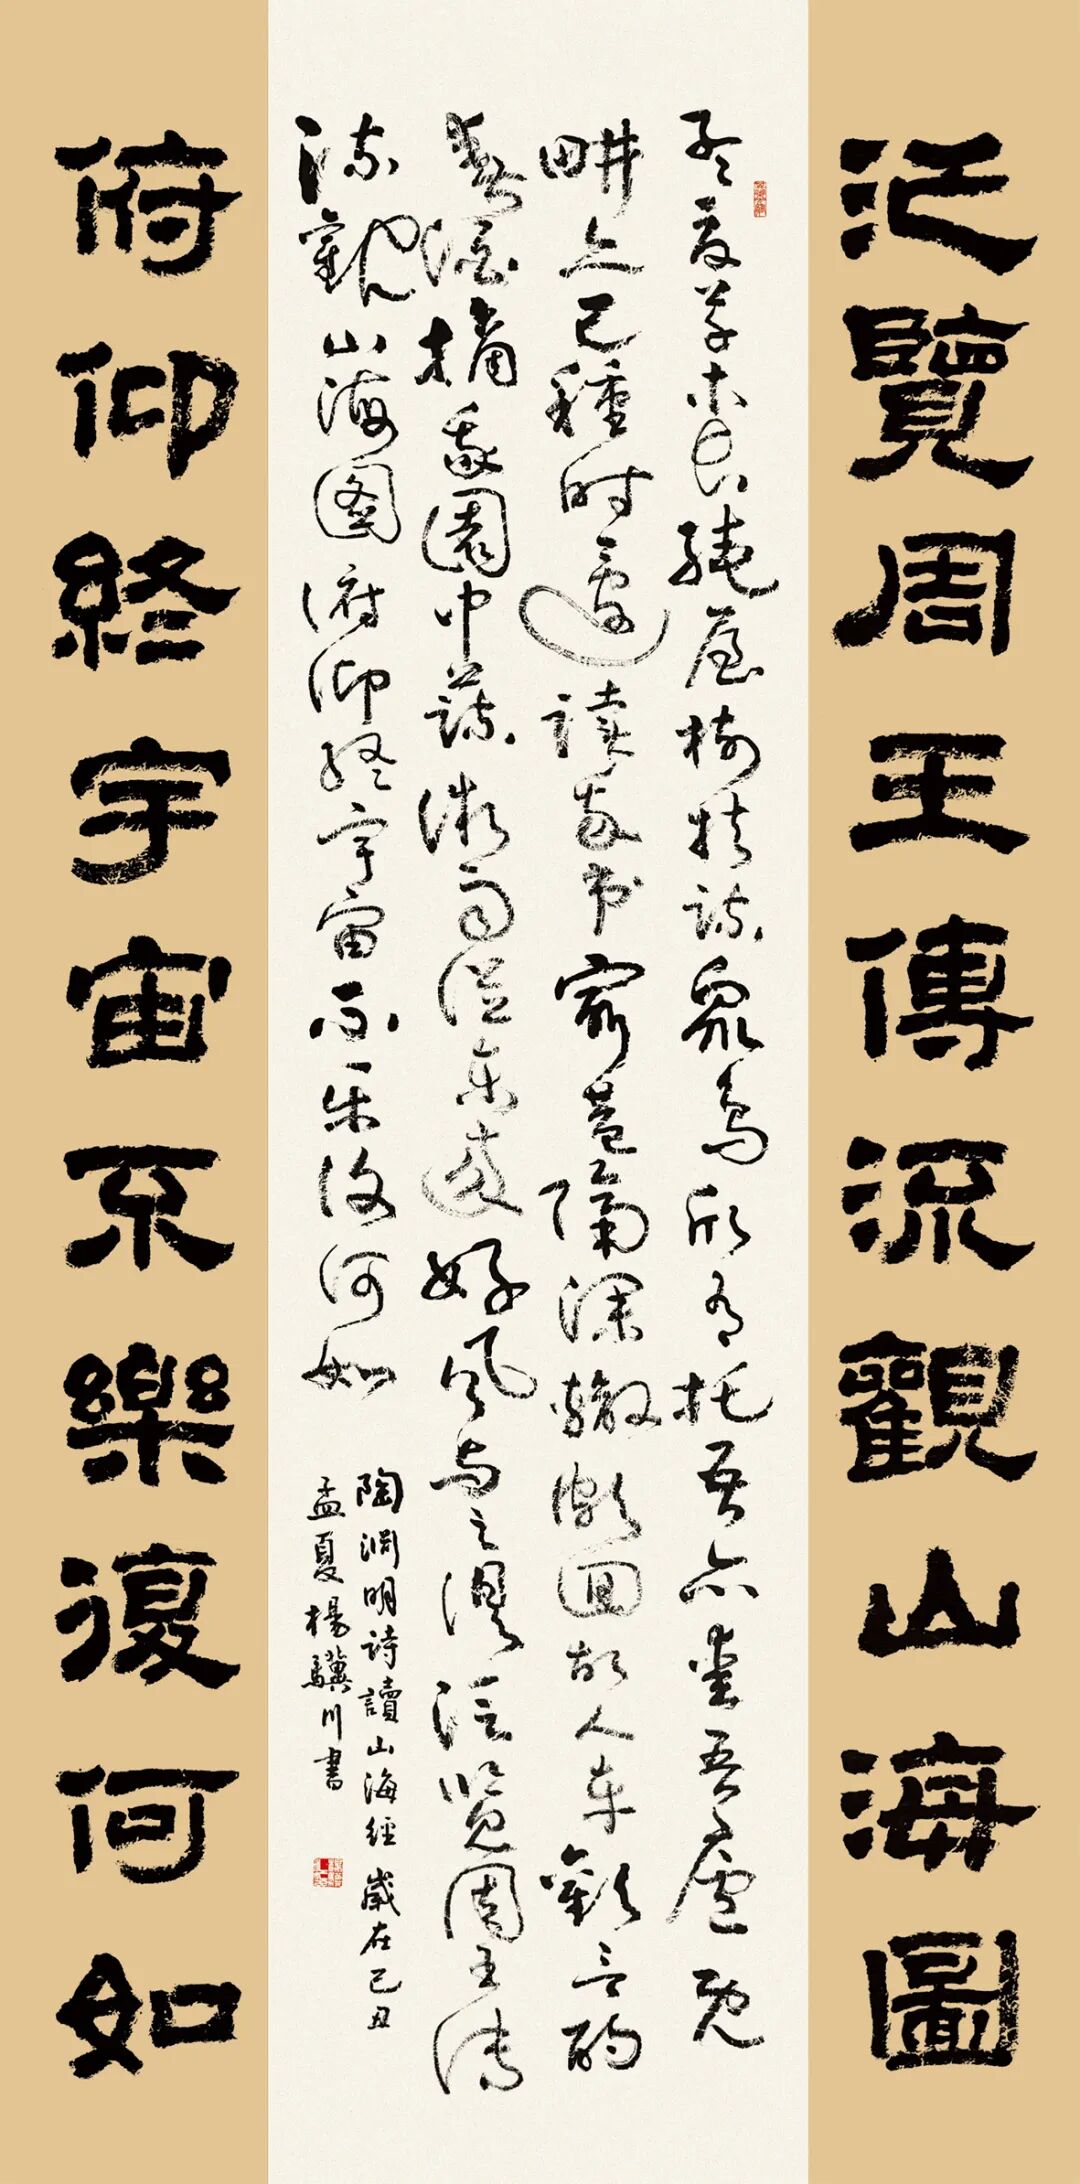 泛覽周王傳流觀山海圖
孟夏草木長繞屋樹扶疏眾鳥欣有托吾亦愛吾廬既
畊亦已種時還讀我書窮巷隔深轍頗回故人車歡言酌
春酒摘我園中蔬微雨從東來好風與之俱泛覽周王傳
流觀山海圖俯仰終宇宙不樂復何如
陶淵明詩讀山海經 歲在己丑
孟夏楊驥川書
俯仰終宇宙不樂復何如